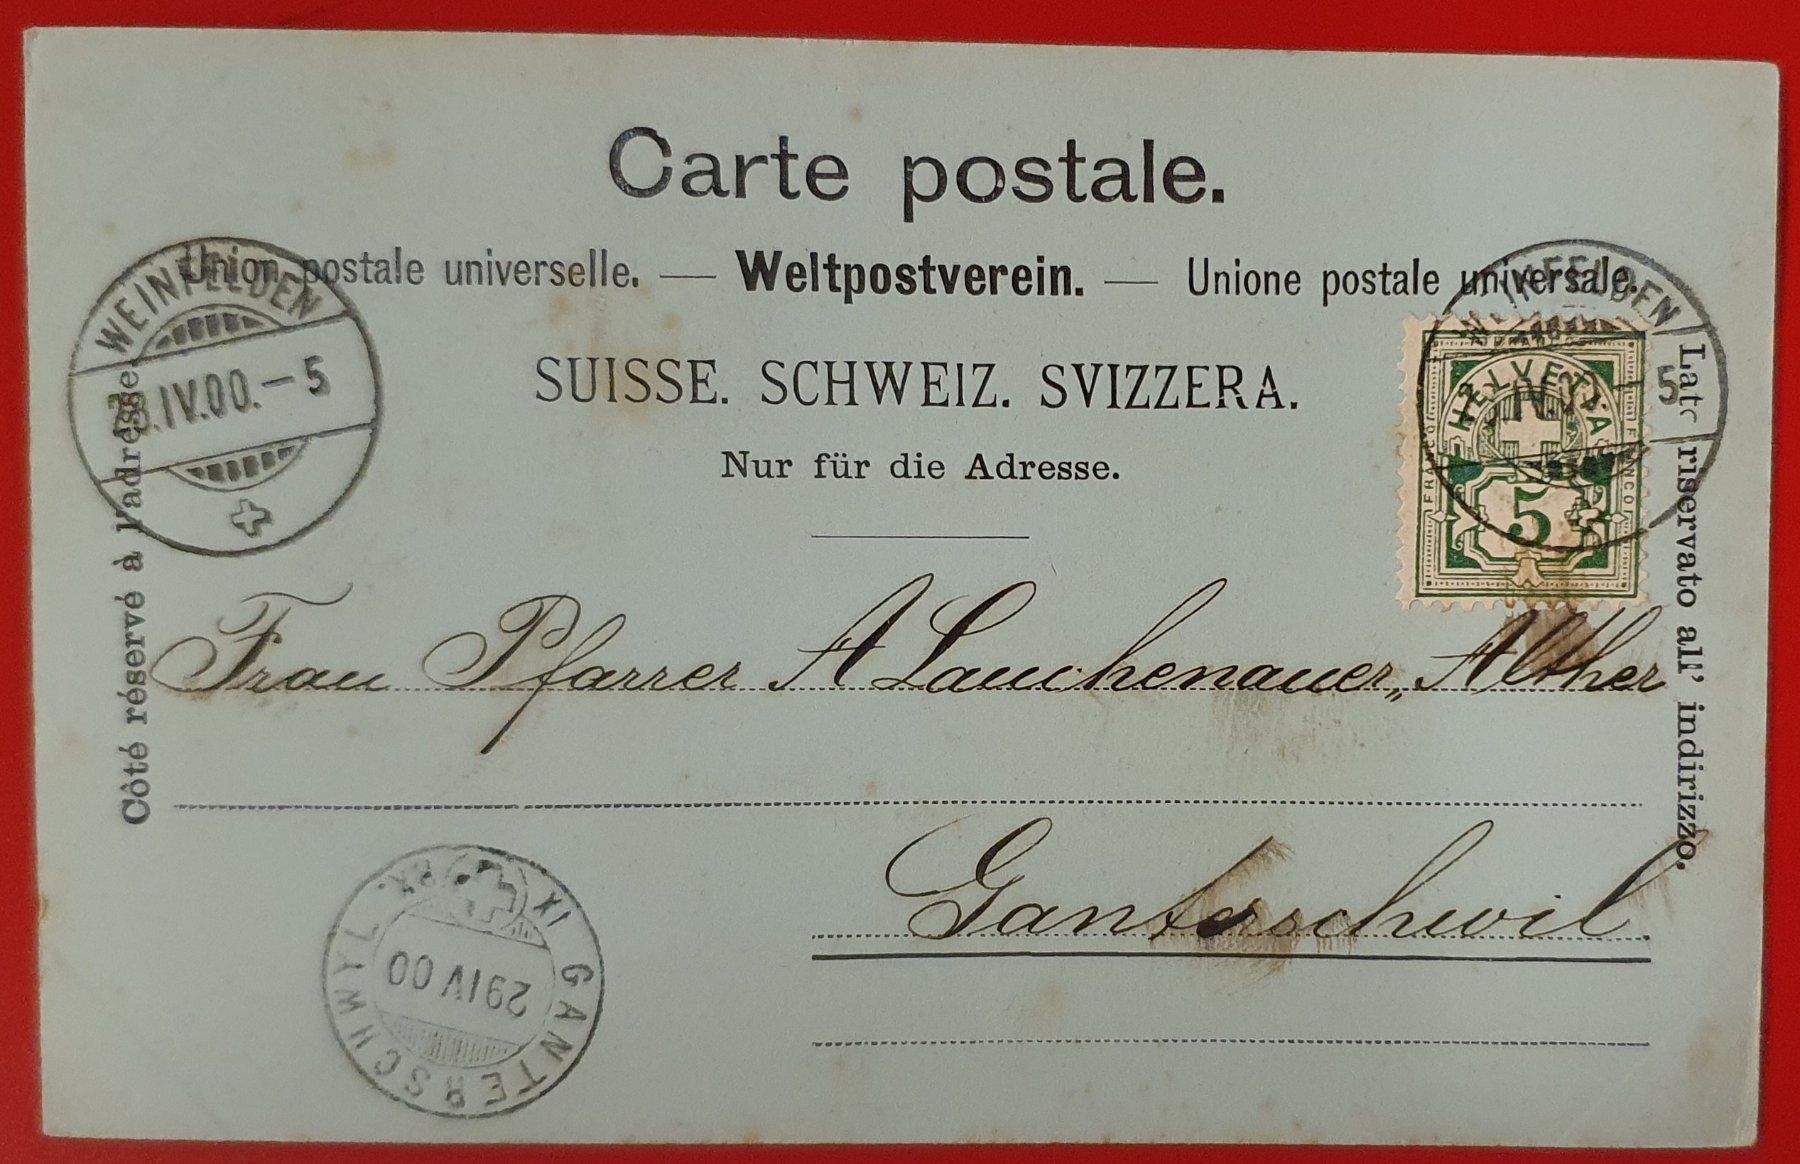 Carte postale.
Union postale universelle. — Weltpostverein. — Unione postale universale.
SUISSE. SCHWEIZ. SVIZZERA.
Nur für die Adresse.
Côté réservé à l'adresse.
Lato riservato all' indirizzo.
WEINFELDEN
.IV.00.–5
WEINFELDEN
5
FRANCO
HELVETIA
FRANCO
5
Frau Pfarrer A Lauchenauer„ Alther
Ganterschwil.
GANTERSCHWYL
29 IV 00
XI